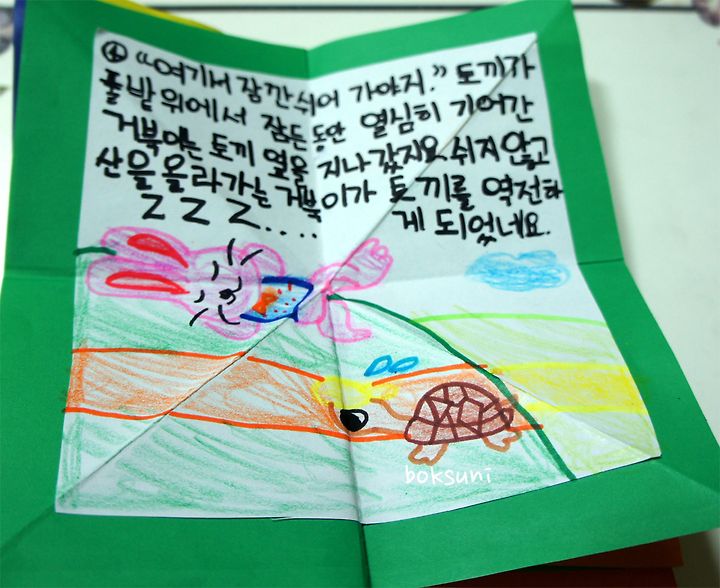 ④ "여기서 잠깐 쉬어 가야지." 토끼가
풀밭 위에서 잠든 동안 열심히 기어간
거북이는 토끼 옆을 지나갔지요. 쉬지 않고
산을 올라가는 거북이가 토끼를 역전하
게 되었네요.
ZZZ....
boksuni